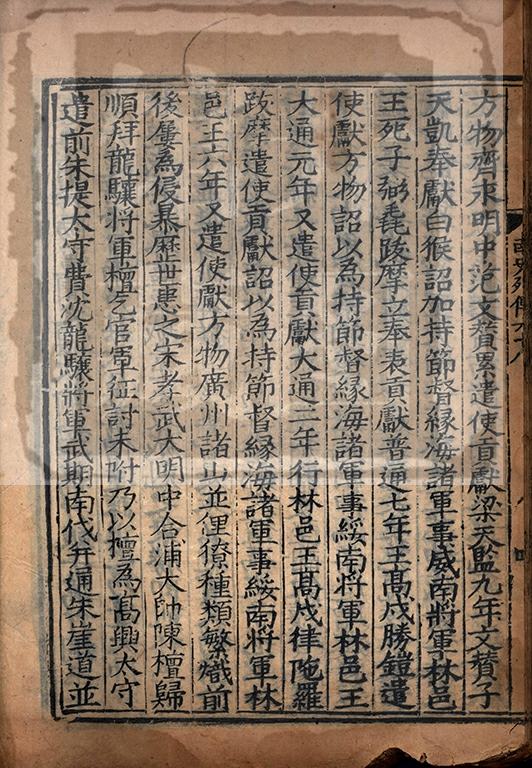 南史列傳六十八
方物齊永明中范文賛累遣使貢獻梁天監九年文賛子
天凱奉獻白猴詔加持節督縁海諸軍事威南將軍林邑
王死子弼毳跋摩立奉表貢獻普通七年王髙戍勝鎧遣
使獻方物詔以為持節督縁海諸軍事綏南將軍林邑王
大通元年又遣使貢獻大通二年行林邑王髙戍律陁羅
跋摩遣使貢獻詔以為持節督縁海諸軍事綏南將軍林
邑王六年又遣使獻方物廣州諸山並俚獠種類繁熾前
後屢為侵暴歷世患之宋孝武大明中合浦大帥陳檀歸
順拜龍驤將軍檀乞官軍征討未附乃以檀為髙興太守
遣前朱提太守費沈龍驤將軍武期南伐并通朱崖道並